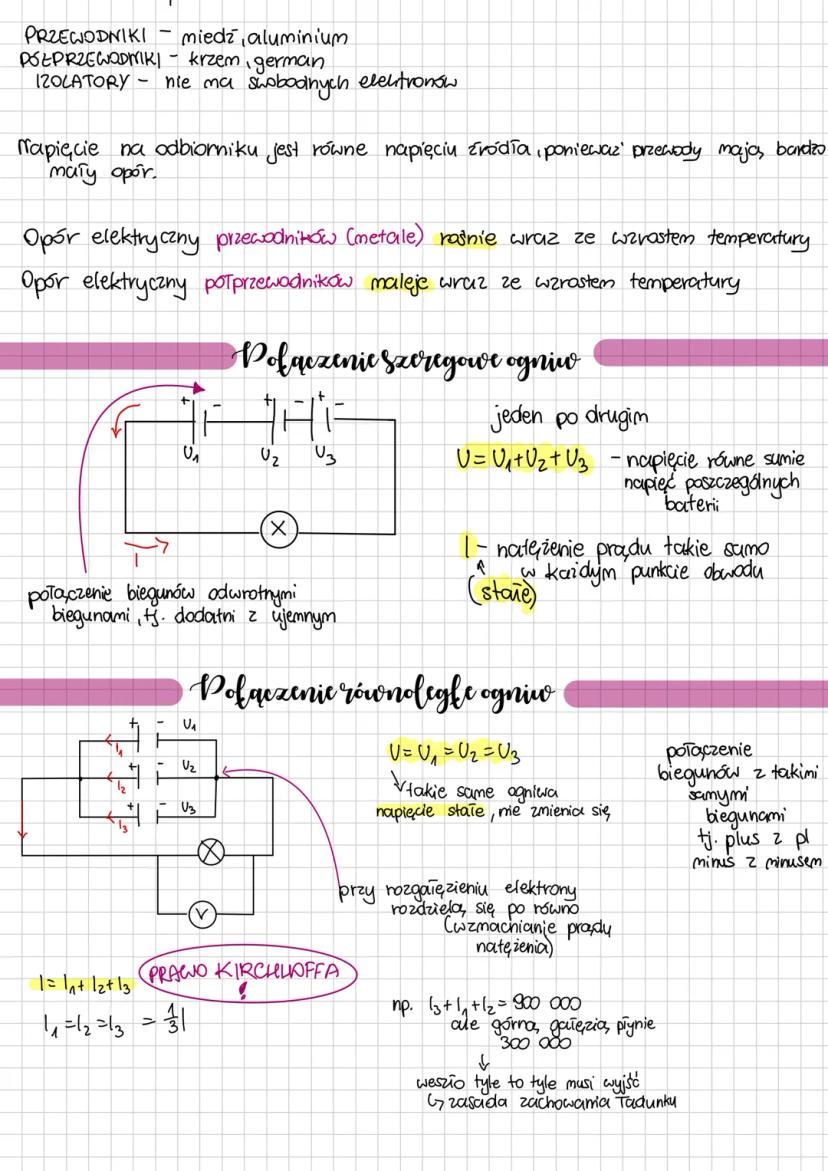 PRZEWODNIKI - miedź, aluminium
PÓŁPRZEWODNIKI - krzem, german
IZOLATORY - nie ma swobodnych elektronów
Napięcie na odbiorniku jest równe napięciu źródła, ponieważ przewody mają bardzo
mały opór.
Opór elektryczny przewodników (metale) rośnie wraz ze wzrostem temperatury
Opór elektryczny półprzewodników maleje wraz ze wzrostem temperatury
Połączenie szeregowe ogniw
+ - + - + -
U₁ U₂ U₃
X
I
połączenie biegunów odwrotnymi
biegunami, tj. dodatni z ujemnym
jeden po drugim
U = U₁ + U₂ + U₃ - napięcie równe sumie
napięć poszczególnych
baterii
I - natężenie prądu takie samo
w każdym punkcie obwodu
(stałe)
Połączenie równoległe ogniw
+ - U₁
I₁
+ - U₂
I₂
+ - U₃
I₃
X
V
U = U₁ = U₂ = U₃
takie same ogniwa
napięcie stałe, nie zmienia się
połączenie
biegunów z takimi
samymi
biegunami
tj. plus z pl
minus z minusem
przy rozgałęzieniu elektrony
rozdzielą się po równo
(wzmacnianie prądu
natężenia)
I = I₁ + I₂ + I₃
PRAWO KIRCHHOFFA
!
I₁ = I₂ = I₃ = 1/3 I
np. I₃ + I₁ + I₂ = 900 000
ale górną gałęzią płynie
300 000
↓
weszło tyle to tyle musi wyjść
↳ zasada zachowania ładunku